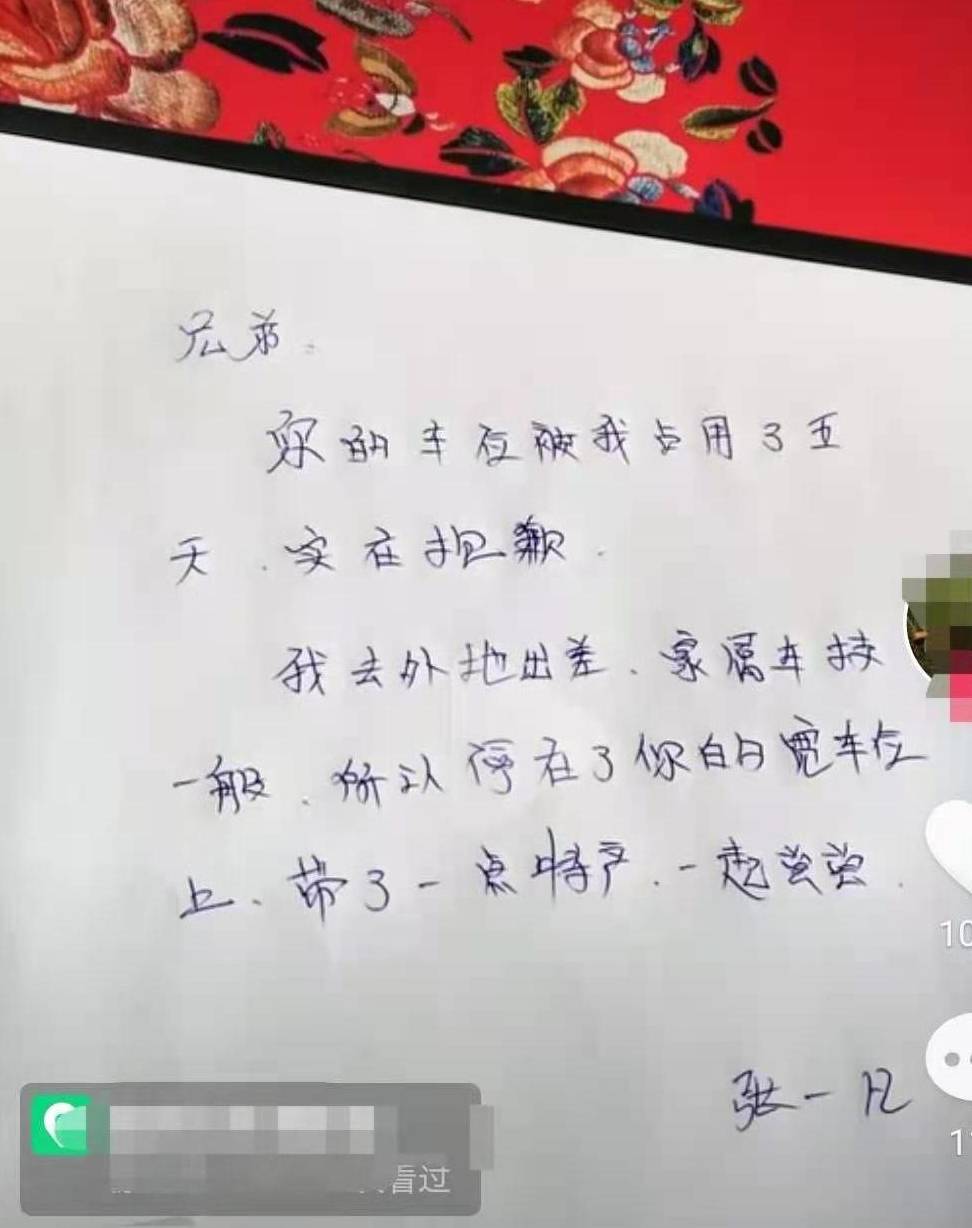 兄弟.
您的车位被我占用了五
天.实在抱歉.
我去外地出差.家属车技
一般.所以停在了你的宽车位
上、带了一点特产.一起尝尝.
张一凡
10
11
看过